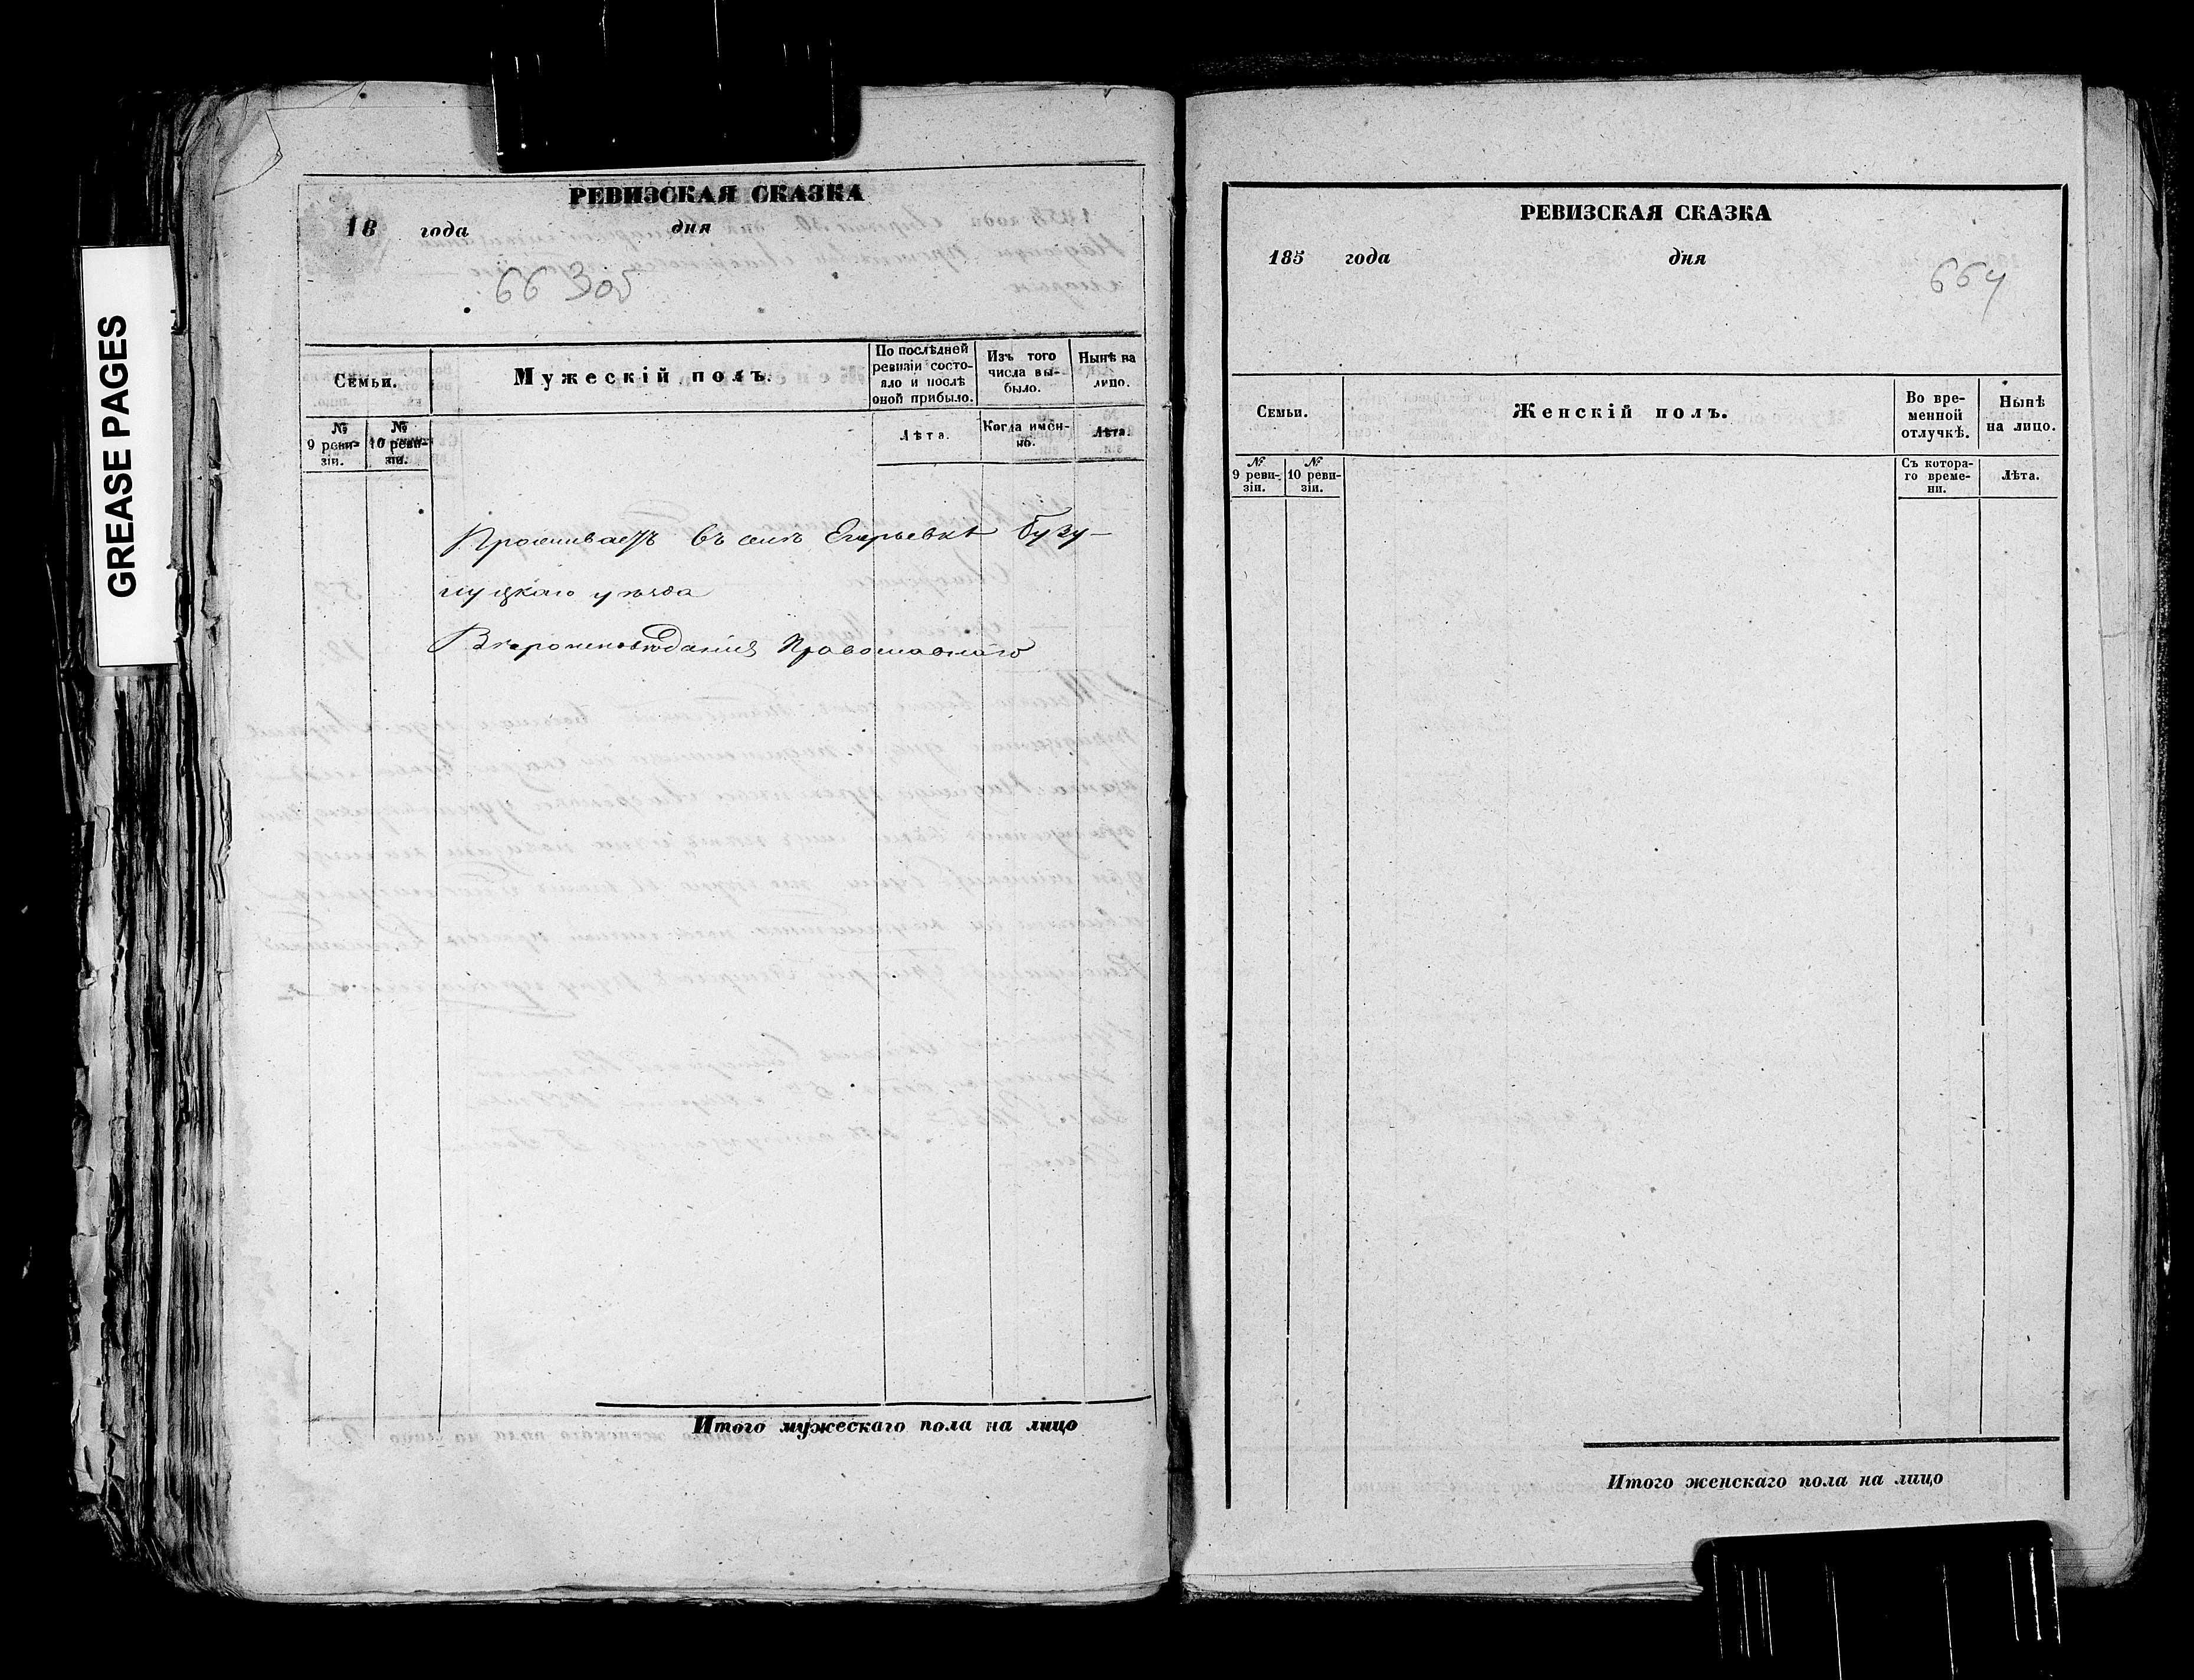 GREASE PAGES
РЕВИЗСКАЯ СКАЗКА
18 года дня
66 3об
Семьи.
Мужескій полъ.
По послѣдней ревизіи состояло и послѣ оной прибыло.
Изъ того числа выбыло.
Нынѣ на лицо.
№ 9 ревизіи.
№ 10 ревизіи.
Лѣта.
Когда именно.
Лѣта.
Проживаетъ въ селѣ Егорьевкѣ Бузу-
луцкаго уѣзда
Вѣроисповѣданія Православнаго
Итого мужескаго пола на лицо
РЕВИЗСКАЯ СКАЗКА
185 года дня
664
Семьи.
Женскій полъ.
Во временной отлучкѣ.
Нынѣ на лицо.
№ 9 ревизіи.
№ 10 ревизіи.
Съ котораго времени.
Лѣта.
Итого женскаго пола на лицо